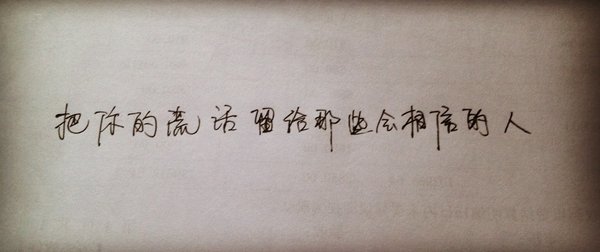 把你的谎话留给那些会相信的人